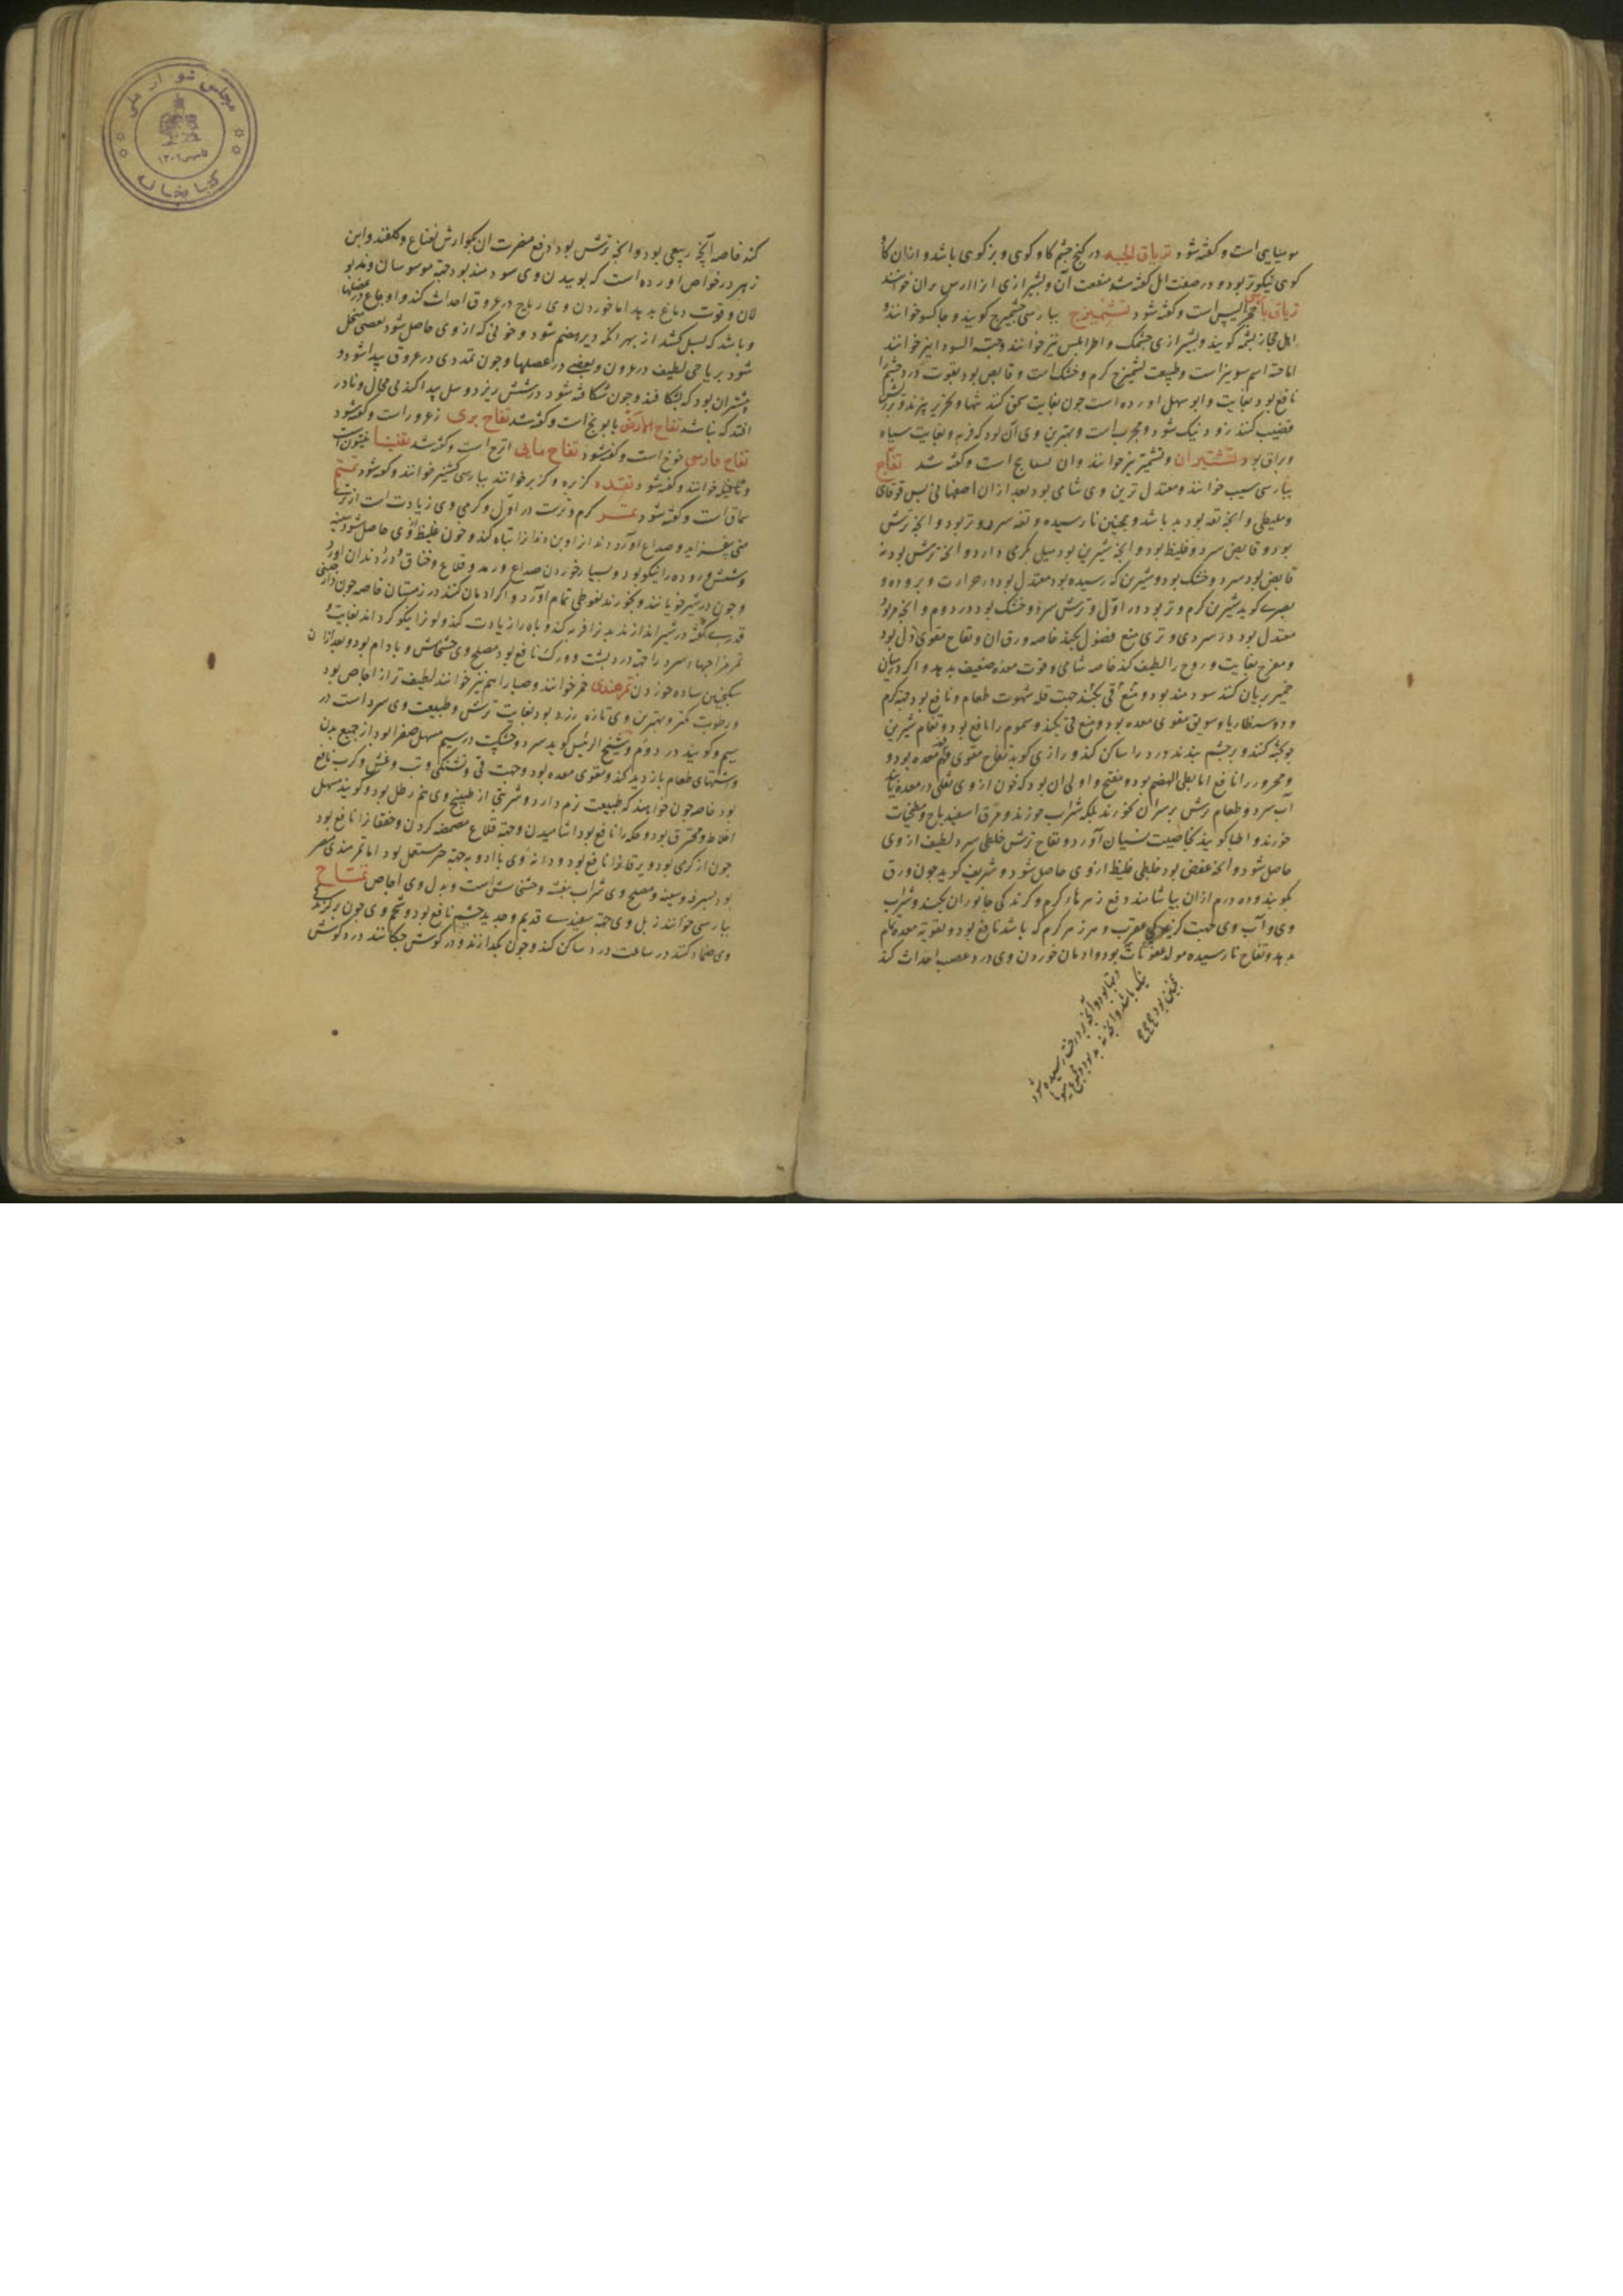 مومیایی است و گفته شود تریاق الحیه در کنج چشم گاو کوهی و بز کوهی باشد و از آن گاو
کوهی نیکوتر بود و در صفت ایل گفته شد منفعت آن و بشیرازی
حجر التیس است و گفته شود تشمیزج بپارسی چشمیزج گویند و چاکسو خوانند و
اهل حجاز بشمه گویند و بشیرازی چشمک و نیز خوانند و حبة السودا نیز خوانند
اما حبه اسم شونیز است و طبیعت تشمیزج گرم و خشک است و قابض بود بقوت درد چشم را
نافع بود بغایت و ابو سهل آورده است چون بغایت سحق کنند تنها و بحریر بیزند و بر ریش
قضیب کنند زود نیک شود و مجرب است و بهترین وی آن بود که فربه و بغایت سیاه
و براق بود تشتیوان و تشمیز نیز خوانند و آن بسفایج است و گفته شد تفاح
بپارسی سیب خوانند و معتدل ترین وی شامی بود بعد از آن اصفهانی پس قوقانی
و آنچه تفه بود بد باشد و همچنین نارسیده و تفه سرد و تر بود و آنچه ترش
بود و قابض سرد و غلیظ بود و آنچه شیرین بود میل بگرمی دارد و آنچه ترش بود نه
قابض بود سرد و خشک بود و شیرین که رسیده بود معتدل بود در حرارت و برودت و
بصری گوید شیرین گرم و تر بود در اول و ترش سرد و خشک بود در دوم و آنچه مز بود
معتدل بود در سردی و تری منع فضول بکند خاصه ورق آن و تفاح مقوی دل بود
و مفرح بغایت و روح را لطیف کند خاصه شامی و قوت معده ضعیف بدهد و اگر در میان
خمیر بریان کنند سودمند بود و منع قی بکند جهت قلت شهوت طعام و نافع بود جهت کرم
و دوسنطاریا و سویق مقوی معده بود و منع قی بکند و سموم را نافع بود و تفاح شیرین
چو پخته کنند و بر چشم بندند درد را ساکن کند و رازی گوید تفاح مقوی فم معده بود و
و محرور را نافع اما بطی الهضم بود و منفخ و اولی آن بود که چون از وی ثقلی در معده یابد
آب سرد و طعام ترش بر سر آن نخورند بلکه شراب خورند و مرق اسفیدباج و مطجنات
خورند و اطبا گویند بخاصیت نسیان آورد و تفاح ترش خلطی سرد لطیف از وی
حاصل شود و آنچه عفص بود خلطی غلیظ از وی حاصل شود و شریف گوید چون ورق
بکوبند و ده درم از آن بیاشامند دفع زهرهای گرم و گزندگی جانوران بکند و شراب
وی و آب وی جهت گزیدگی عقرب و هر زهر گرم که باشد نافع بود و تقویت معده تمام
بدهد و تفاح نارسیده مولد عفونات بود و ادمان خوردن وی درد عصب احداث کند
و آنچه بر درخت رسیده شود
نیک باشد و آنچه نه بد بود و جمیع میوها
همچنین بود
کند خاصه آنچه ربیعی بود و آنچه ترش بود و دفع مضرت آن بجوارش نعناع و گلقند و ابن
زهر در خواص آورده است که بوییدن وی سودمند بود جهت موسوسان و
و قوت دماغ بدهد اما خوردن وی ریاح در عروق احداث کند و اوجاع در عضلها
و باشد که بسل کشد از بهر آنکه دیر هضم شود و خونی که از وی حاصل شود بعضی متحلل
شود بریاحی لطیف در عروق و بعضی در عضلها و چون تمددی در عروق پیدا شود و
بیشتر آن بود که بشکافند و چون شکافته شود در شش ریزد و سل پیدا کند لا محال و نادر
افتد که نباشد تفاح الارض بابونج است و گفته شد تفاح بری زعرور است و گفته شود
تفاح فارسی خوخ است و گفته شود تفاح مایی اترج است و گفته شد
خوانند و گفته شود تقده کزبره و کزبر خوانند بپارسی گشنیز خوانند و گفته شود تمتم
سماق است و گفته شود تمر گرم و ترست در اول و گرمی وی زیادت است از تری
منی بیفزاید و صداع آورد و دندان و بن دندان را تباه کند و خون غلیظ از وی حاصل شود سینه
و شش و روده را نیکو بود و بسیار خوردن صداع و رمد و قلاع و خناق و درد دندان آورد
و چون در شیر خیسانند و بخورند نعوظی تمام آورد و اگر ادمان کنند در زمستان خاصه چون دارچینی
قدری کوفته در شیر اندازند بدن را فربه کند و باه را زیادت کند و لون را نیکو گرداند بغایت و
تمر مزاجهاء سرد را جهت درد پشت و ورک نافع بود مصلح وی خشخاش و بادام بود و بعد از آن
سکنجبین ساده خوردن تمر هندی حمر خوانند و صبار هم نیز خوانند لطیف تر از اجاص بود
و رطوبت کمتر و بهترین وی تازه زرد بود بغایت ترش و طبیعت وی سرد است در
سیم و گویند در دوم و شیخ الرئیس گوید سرد و خشکست در سیم مسهل صفرا بود از جمیع بدن
و شهای طعام بازدید کند و مقوی معده بود و جهت قی و تشنگی و تب و غشی و کرب نافع
بود خاصه چون خواهند که طبیعت نرم دارد و شربتی از طبیخ وی نیم رطل بود و گویند مسهل
اخلاط محترق بود و حکه را نافع بود آشامیدن و جهت قلاع مضمضه کردن و خفقان را نافع بود
چون از گرمی بود و یرقان را نافع بود و دانه وی با ادویه جهت مستعمل بود اما تمر هندی مضر
بود بسرفه و سینه و مصلح وی شراب بنفشه و خشخاش است و بدل وی اجاص تمساح
بپارسی خوانند زبل وی جهت سفیدی قدیم و جدید چشم نافع بود و شحم وی چون بر گزیدگی
وی ضماد کنند در ساعت درد ساکن کند و چون بگدازند و در گوش چکانند درد گوش
مجلس شورای ملی
کتابخانه